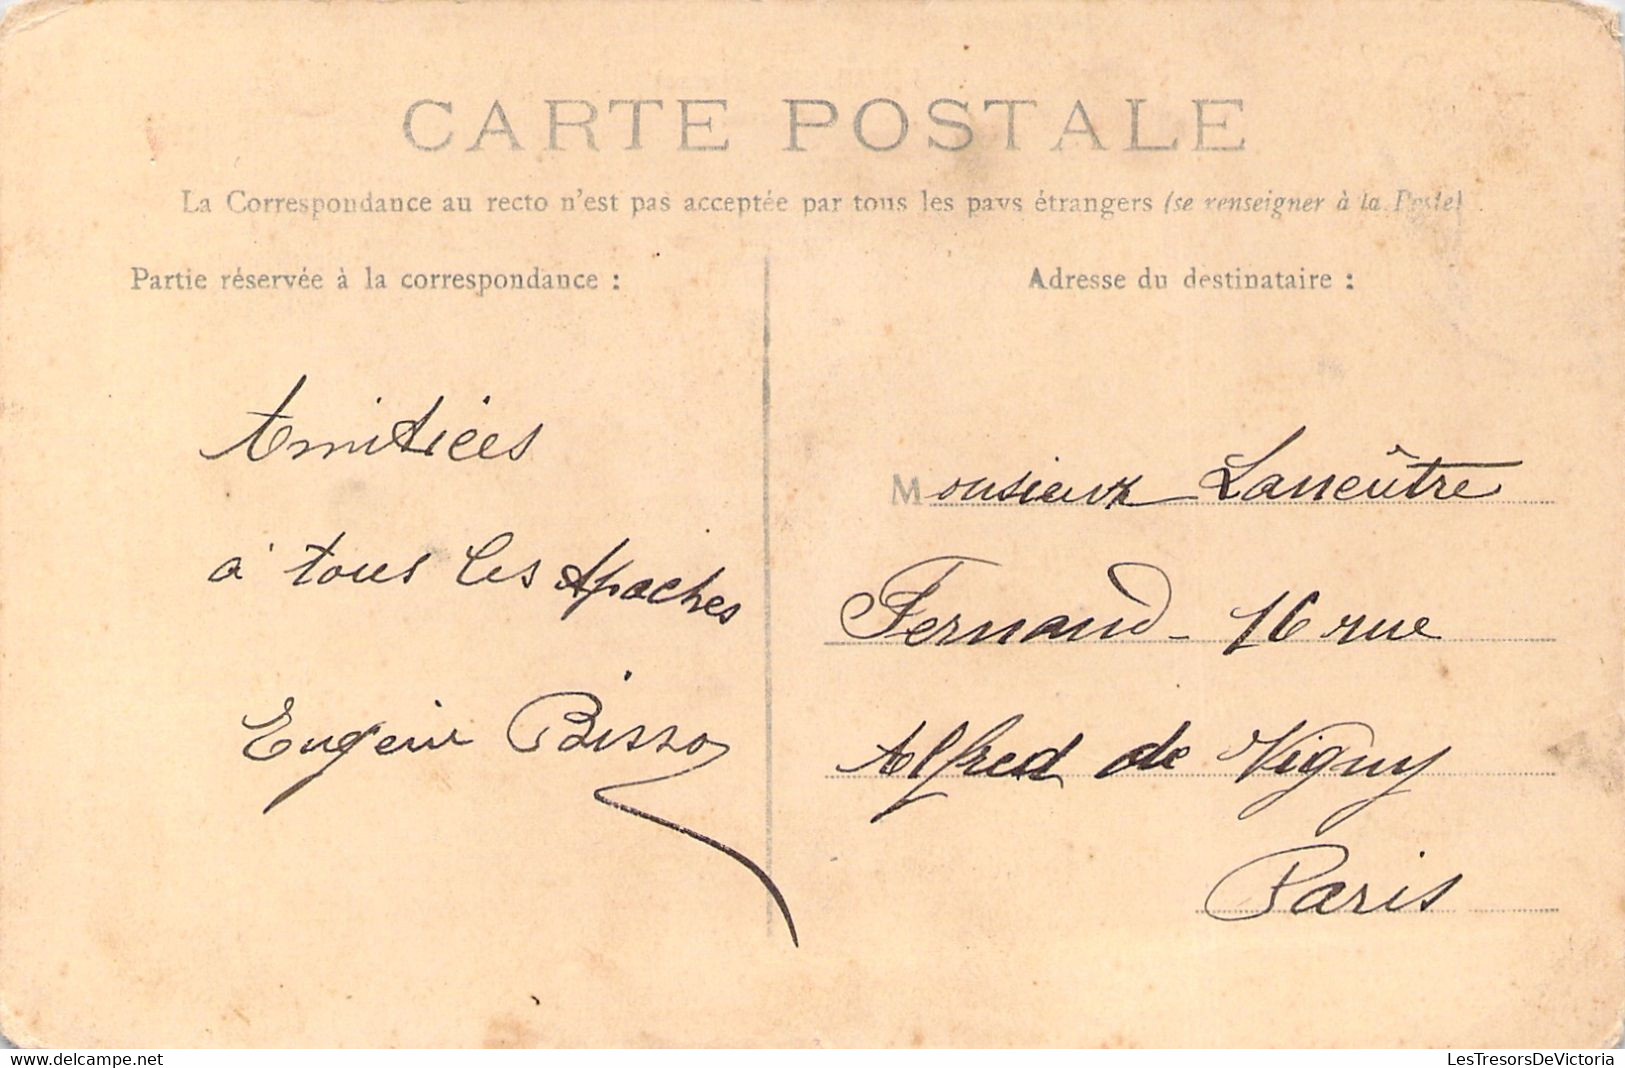 CARTE POSTALE
La Correspondance au recto n'est pas acceptée par tous les pays étrangers (se renseigner à la Poste)
Partie réservée à la correspondance :
Amitiées
à tous les Apaches
Eugénie Bisso
Adresse du destinataire :
Monsieur
Fernand - 16 rue
Alfred de Vigny
Paris
LesTresorsDeVictoria
delcampe.net